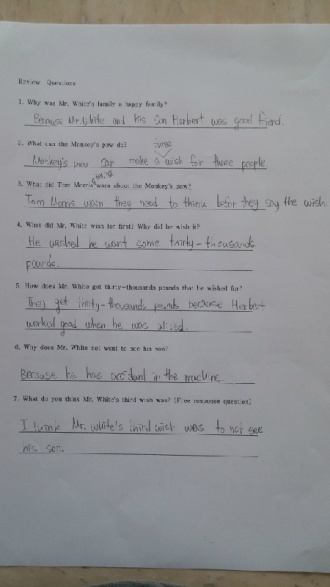 Review Questions
1. Why was Mr. White's family a happy family?
Because Mr. White and his son Herbert was good friend.
2. What can the Monkey's paw do?
Monkey's paw can make a wish for three people
3. What did Tom Morris warn about the Monkey's paw?
Tom Morris warn they need to think befor they say the wish
4. What did Mr. White wish for first? Why did he wish it?
He wished he want some thirty-thousands
pounds.
5. How does Mr. White get thirty-thousands pounds that he wished for?
They get thirty-thousands pounds because Herbert
worked good when he was
6. Why does Mr. White not want to see his son?
Because he has accident in the machine
7. What do you think Mr. White's third wish was? (Free response question)
I think Mr. White's third wish was to not see
his son.